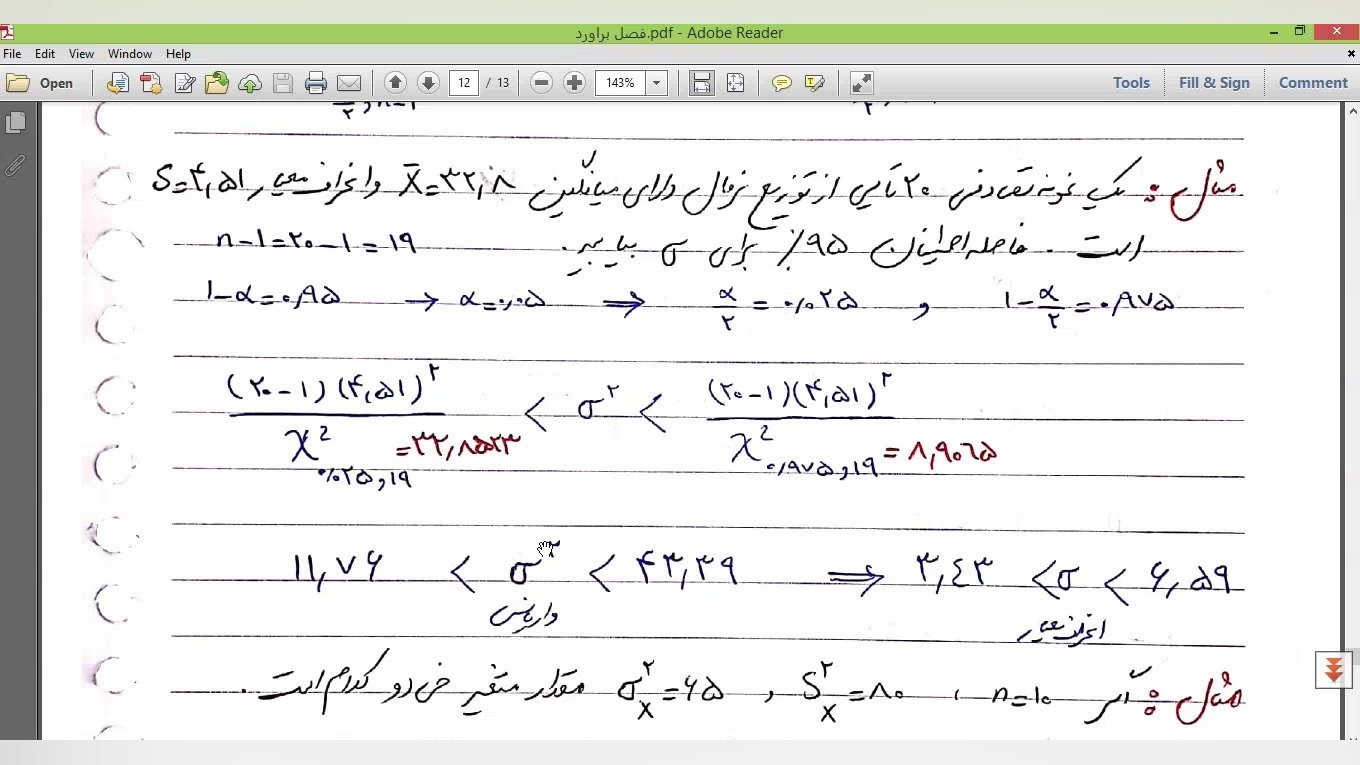 فصل براورد.pdf - Adobe Reader
File Edit View Window Help
Open 12 / 13 143% Tools Fill & Sign Comment
مثال : یک نمونه تصادفی ۲۰ تایی از توزیع نرمال دارای میانگین X̄=۳۲,۸ و انحراف معیار S=۴,۵۱
است. فاصله اطمینان ۹۵٪ برای σ بیابید. n-۱=۲۰-۱=۱۹
۱-α=۰,۹۵ → α=۰,۰۵ ⇒ α/۲ = ۰,۰۲۵ , ۱-α/۲ = ۰,۹۷۵
(۲۰-۱)(۴,۵۱)^۲ / χ²_{۰,۰۲۵,۱۹} =۳۲,۸۵۲۳ < σ^۲ < (۲۰-۱)(۴,۵۱)^۲ / χ²_{۰,۹۷۵,۱۹} = ۸,۹۰۶۵
۱۱,۷۶ < σ^۲ < ۴۳,۳۹ ⇒ ۳,۴۳ < σ < ۶,۵۹
واریانس انحراف معیار
مثال : اگر n=۱۰ ، S^۲_X=۸۰ , σ^۲_X=۶۵ مقدار متغیر خی دو کدام است.